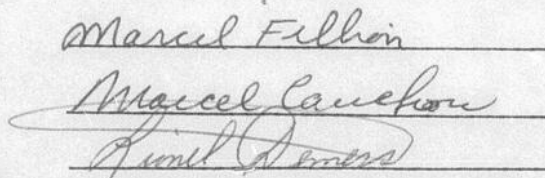 Marcel Fillion
Marcel Cauchon
Lionel Demers